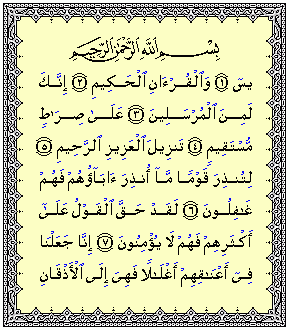 بِسْمِ ٱللَّهِ ٱلرَّحْمَٰنِ ٱلرَّحِيمِ
يسٓ ۝١ وَٱلْقُرْءَانِ ٱلْحَكِيمِ ۝٢ إِنَّكَ
لَمِنَ ٱلْمُرْسَلِينَ ۝٣ عَلَىٰ صِرَٰطٍ
مُّسْتَقِيمٍ ۝٤ تَنزِيلَ ٱلْعَزِيزِ ٱلرَّحِيمِ ۝٥
لِتُنذِرَ قَوْمًا مَّآ أُنذِرَ ءَابَآؤُهُمْ فَهُمْ
غَٰفِلُونَ ۝٦ لَقَدْ حَقَّ ٱلْقَوْلُ عَلَىٰٓ
أَكْثَرِهِمْ فَهُمْ لَا يُؤْمِنُونَ ۝٧ إِنَّا جَعَلْنَا
فِىٓ أَعْنَٰقِهِمْ أَغْلَٰلًا فَهِىَ إِلَى ٱلْأَذْقَانِ